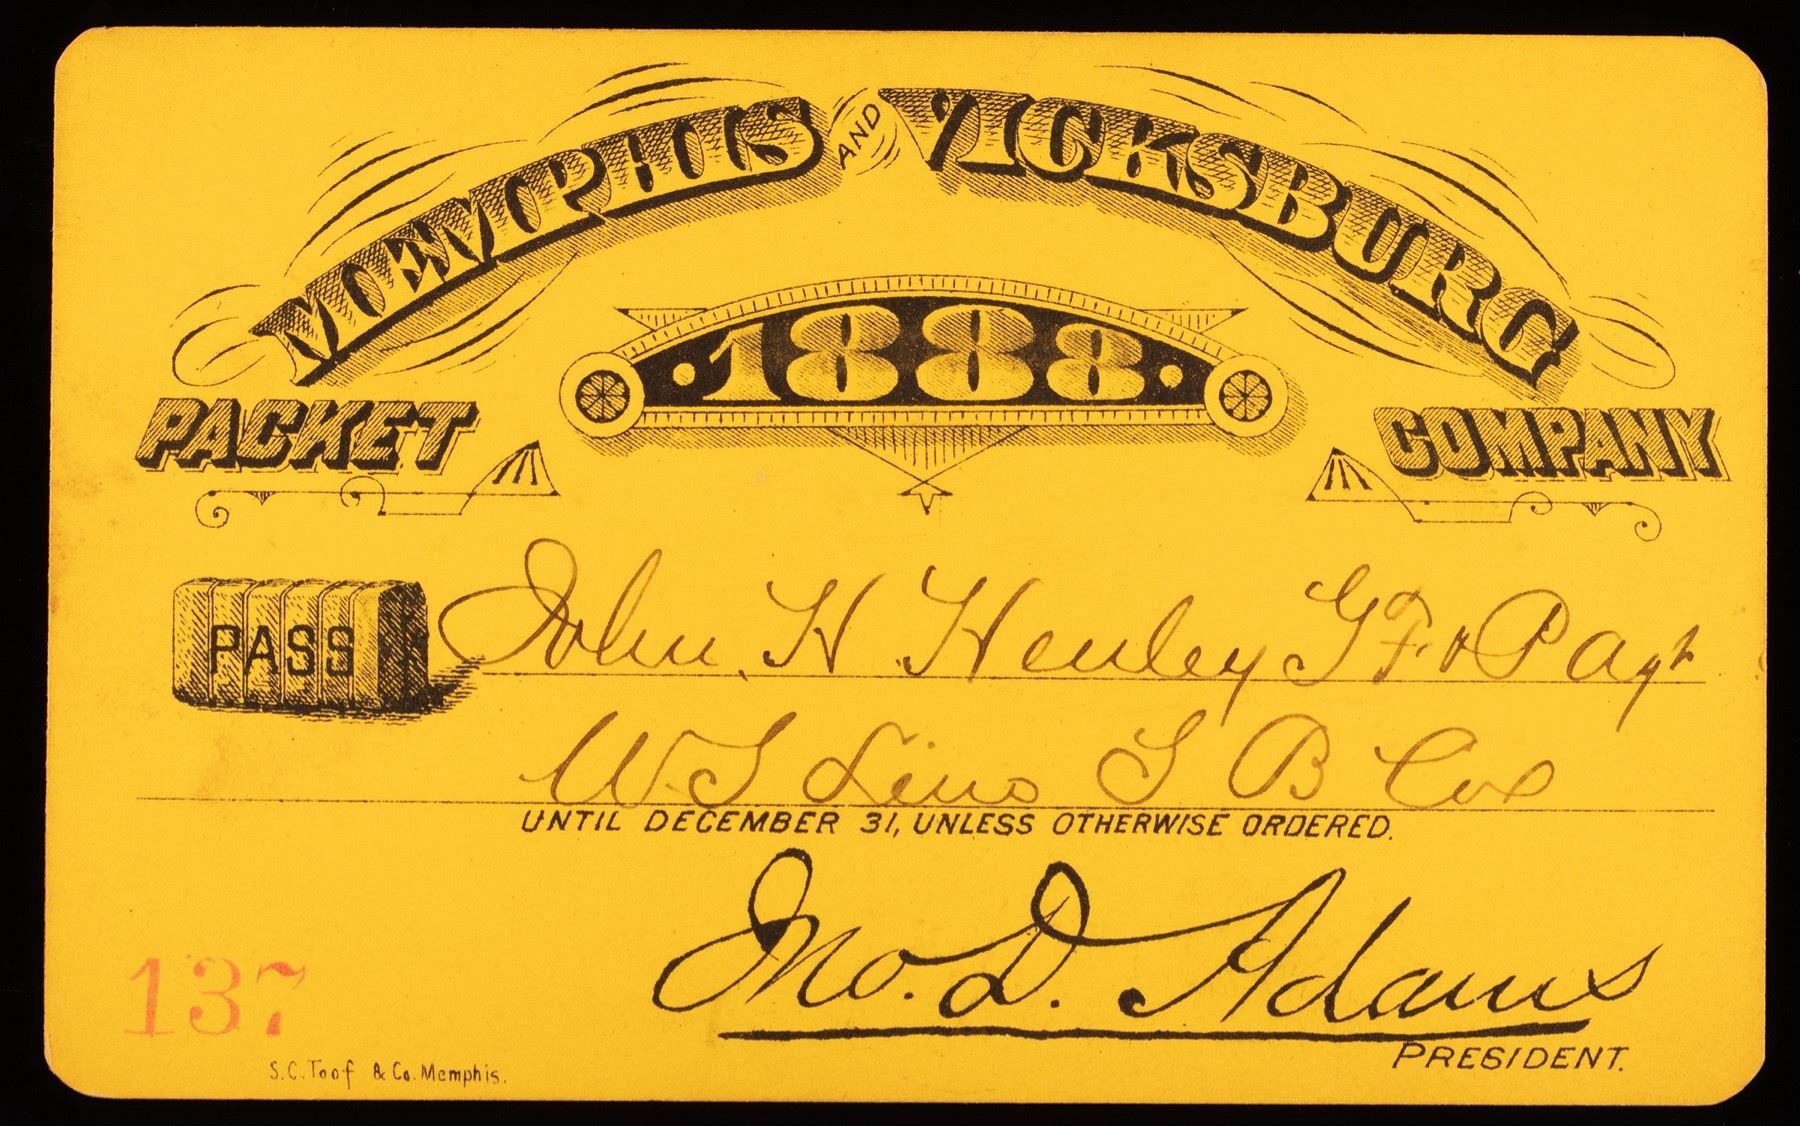 MEMPHIS AND VICKSBURG
PACKET COMPANY
1888
PASS John H Henley G F & P Agt
W. S Line S B Co
UNTIL DECEMBER 31, UNLESS OTHERWISE ORDERED.
Jno. D. Adams
PRESIDENT.
137
S.C. Toof & Co. Memphis.